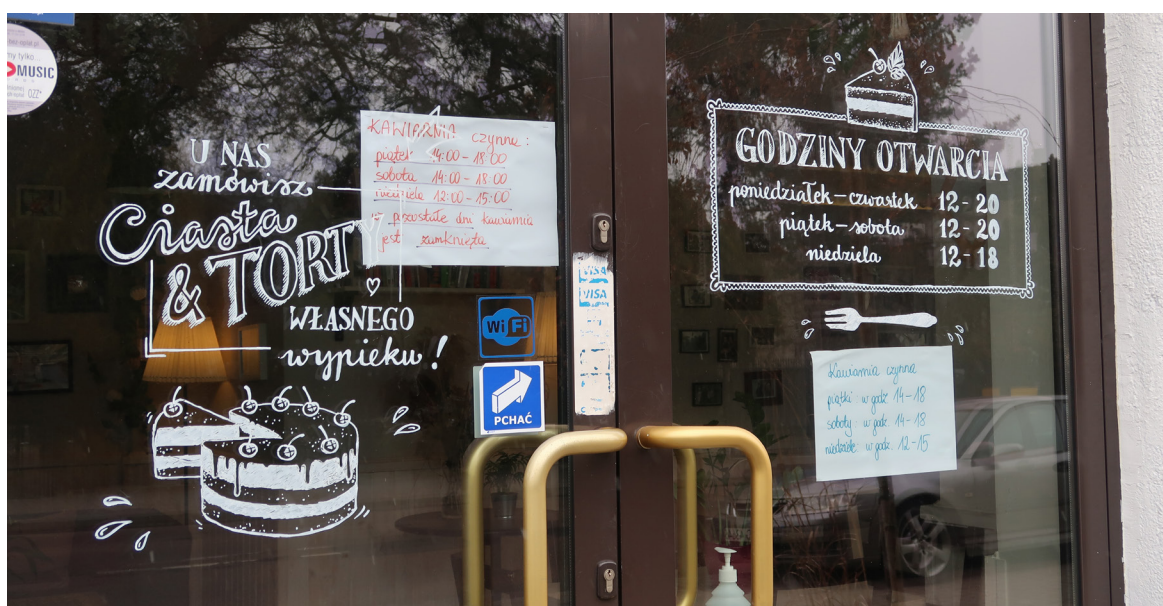 my tylko...
MUSIC
U NAS
zamówisz
Ciasta
& TORTY
WŁASNEGO
wypieku!
KAWIARNIA czynna:
piątek 14:00 - 18:00
sobota 14:00 - 18:00
niedziela 12:00 - 15:00
w pozostałe dni kawiarnia
jest zamknięta
WiFi
PCHAĆ
VISA
VISA
GODZINY OTWARCIA
poniedziałek – czwartek 12 - 20
piątek – sobota 12 - 20
niedziela 12 - 18
Kawiarnia czynna
piątki w godz 14-18
soboty: w godz. 14-18
niedziele w godz. 12-15